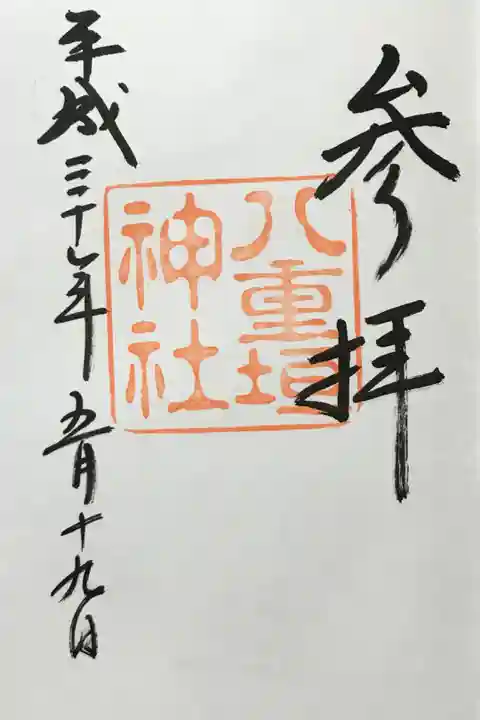 参拝
八重垣
神社
平成三十年五月十九日